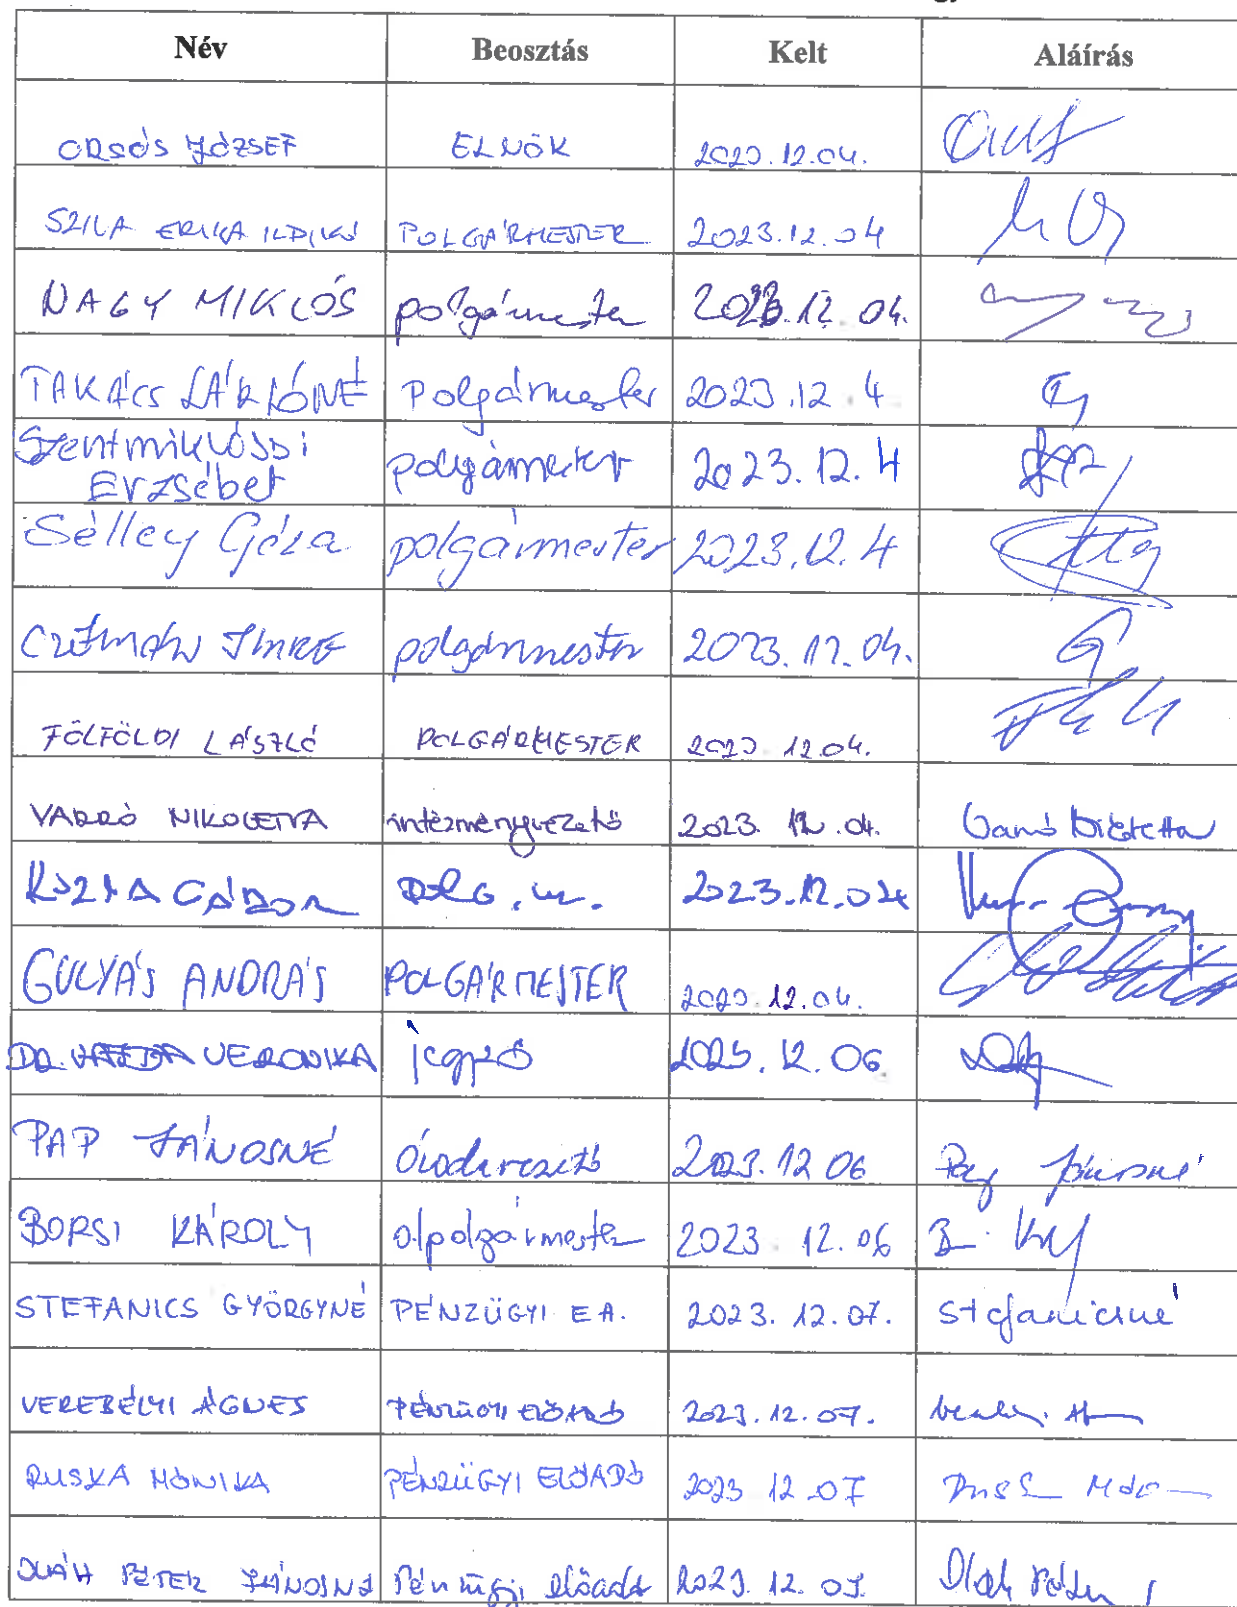 Név Beosztás Kelt Aláírás
ORSÓS JÓZSEF ELNÖK 2023.12.04.
SZILA ERIKA ILDIKÓ POLGÁRMESTER 2023.12.04
NAGY MIKLÓS polgármester 2023.12.04.
TAKÁCS LÁSZLÓNÉ Polgármester 2023.12.4
Szentmiklóssi
Erzsébet polgármester 2023.12.4
Sélley Géza polgármester 2023.12.4
CZIMÁN IMRE polgármester 2023.12.04.
FÖLFÖLDI LÁSZLÓ POLGÁRMESTER 2023 12.04.
VARRÓ NIKOLETTA intézményvezető 2023. 12.04. Varró Nikoletta
KOZMA GÁBOR POLG.m. 2023.12.04
GULYÁS ANDRÁS POLGÁRMESTER 2023.12.04.
DR. VERONIKA jegyző 2023.12.06
PAP JÁNOSNÉ óvodavezető 2023.12 06 Pap Jánosné
BORSI KÁROLY alpolgármester 2023 12.06
STEFANICS GYÖRGYNÉ PÉNZÜGYI EA. 2023.12.07. Stefanicsné
VEREBÉLYI ÁGNES PÉNZÜGYI ELŐADÓ 2023.12.07.
RUSKA MÓNIKA PÉNZÜGYI ELŐADÓ 2023 12.07
OLÁH PÉTER JÁNOSNÉ Pénzügyi előadó 2023.12.07.